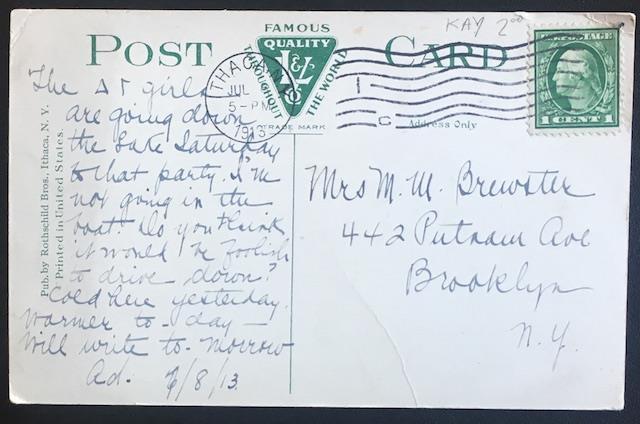 KAY 2⁰⁰
FAMOUS
POST CARD
QUALITY
THROUGHOUT
THE WORLD
TRADE MARK
ITHACA, N.Y.
JUL
5-PM
1913
1
C
POSTAGE
1 CENT 1
Address Only
The ΔΓ girls
are going down
the Lake Saturday
to that party. I'm
not going in the
boat. Do you think
it would be foolish
to drive down?
Cold here yesterday.
Warmer to-day –
Will write to-morrow
Ad. 7/8/13
Mrs M. M. Brewster
442 Putnam Ave
Brooklyn
N.Y.
Pub. by Rothschild Bros., Ithaca, N. Y.
Printed in United States.